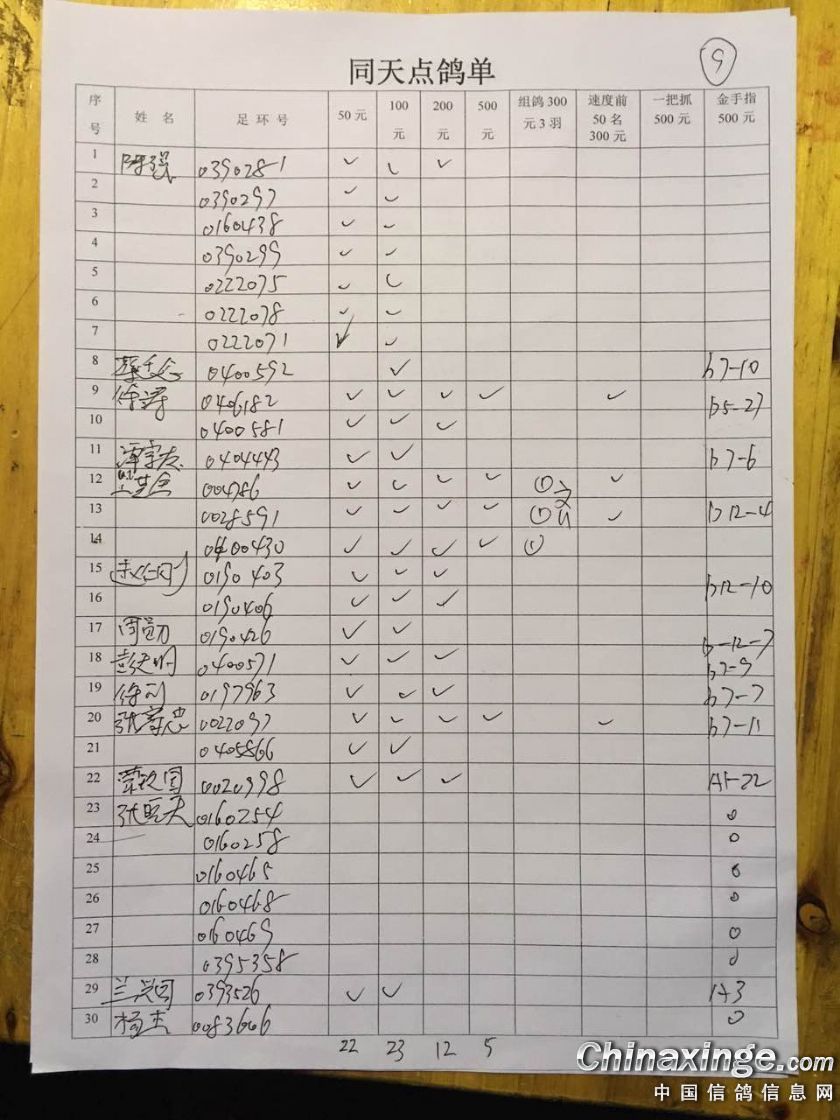 9
同天点鸽单
序号 姓名 足环号 50元 100元 200元 500元 组鸽300元3羽 速度前50名300元 一把抓500元 金手指500元
1 陈强 0390281 ✓ ✓ ✓
2 0390297 ✓ ✓
3 0160438 ✓ ✓
4 0390299 ✓ ✓
5 0222075 ✓ ✓
6 0222078 ✓ ✓
7 0222071 ✓ ✓
8 0400592 ✓ b7-10
9 徐涛 0406182 ✓ ✓ ✓ ✓ ✓ b5-27
10 0400581 ✓ ✓ ✓
11 0404443 ✓ ✓ b7-6
12 004786 ✓ ✓ ✓ ✓ ① ✓
13 0028591 ✓ ✓ ✓ ✓ ① ✓ b12-4
14 0400430 ✓ ✓ ✓ ✓ ①
15 0190403 ✓ ✓ ✓ b12-10
16 0190406 ✓ ✓ ✓
17 0190426 ✓ ✓ b-12-7
18 0400571 ✓ ✓ ✓ b7-9
19 徐利 0197963 ✓ ✓ ✓ b7-7
20 0022097 ✓ ✓ ✓ ✓ ✓ b7-11
21 0405866 ✓ ✓
22 0020998 ✓ ✓ ✓ A1-22
23 0160254 0
24 0160258 0
25 0160465 0
26 0160468 0
27 0160469 0
28 0395358 0
29 兰兴国 0393526 ✓ ✓ 1A3
30 杨杰 0083606 0
22 23 12 5
Chinaxinge.com
中国信鸽信息网